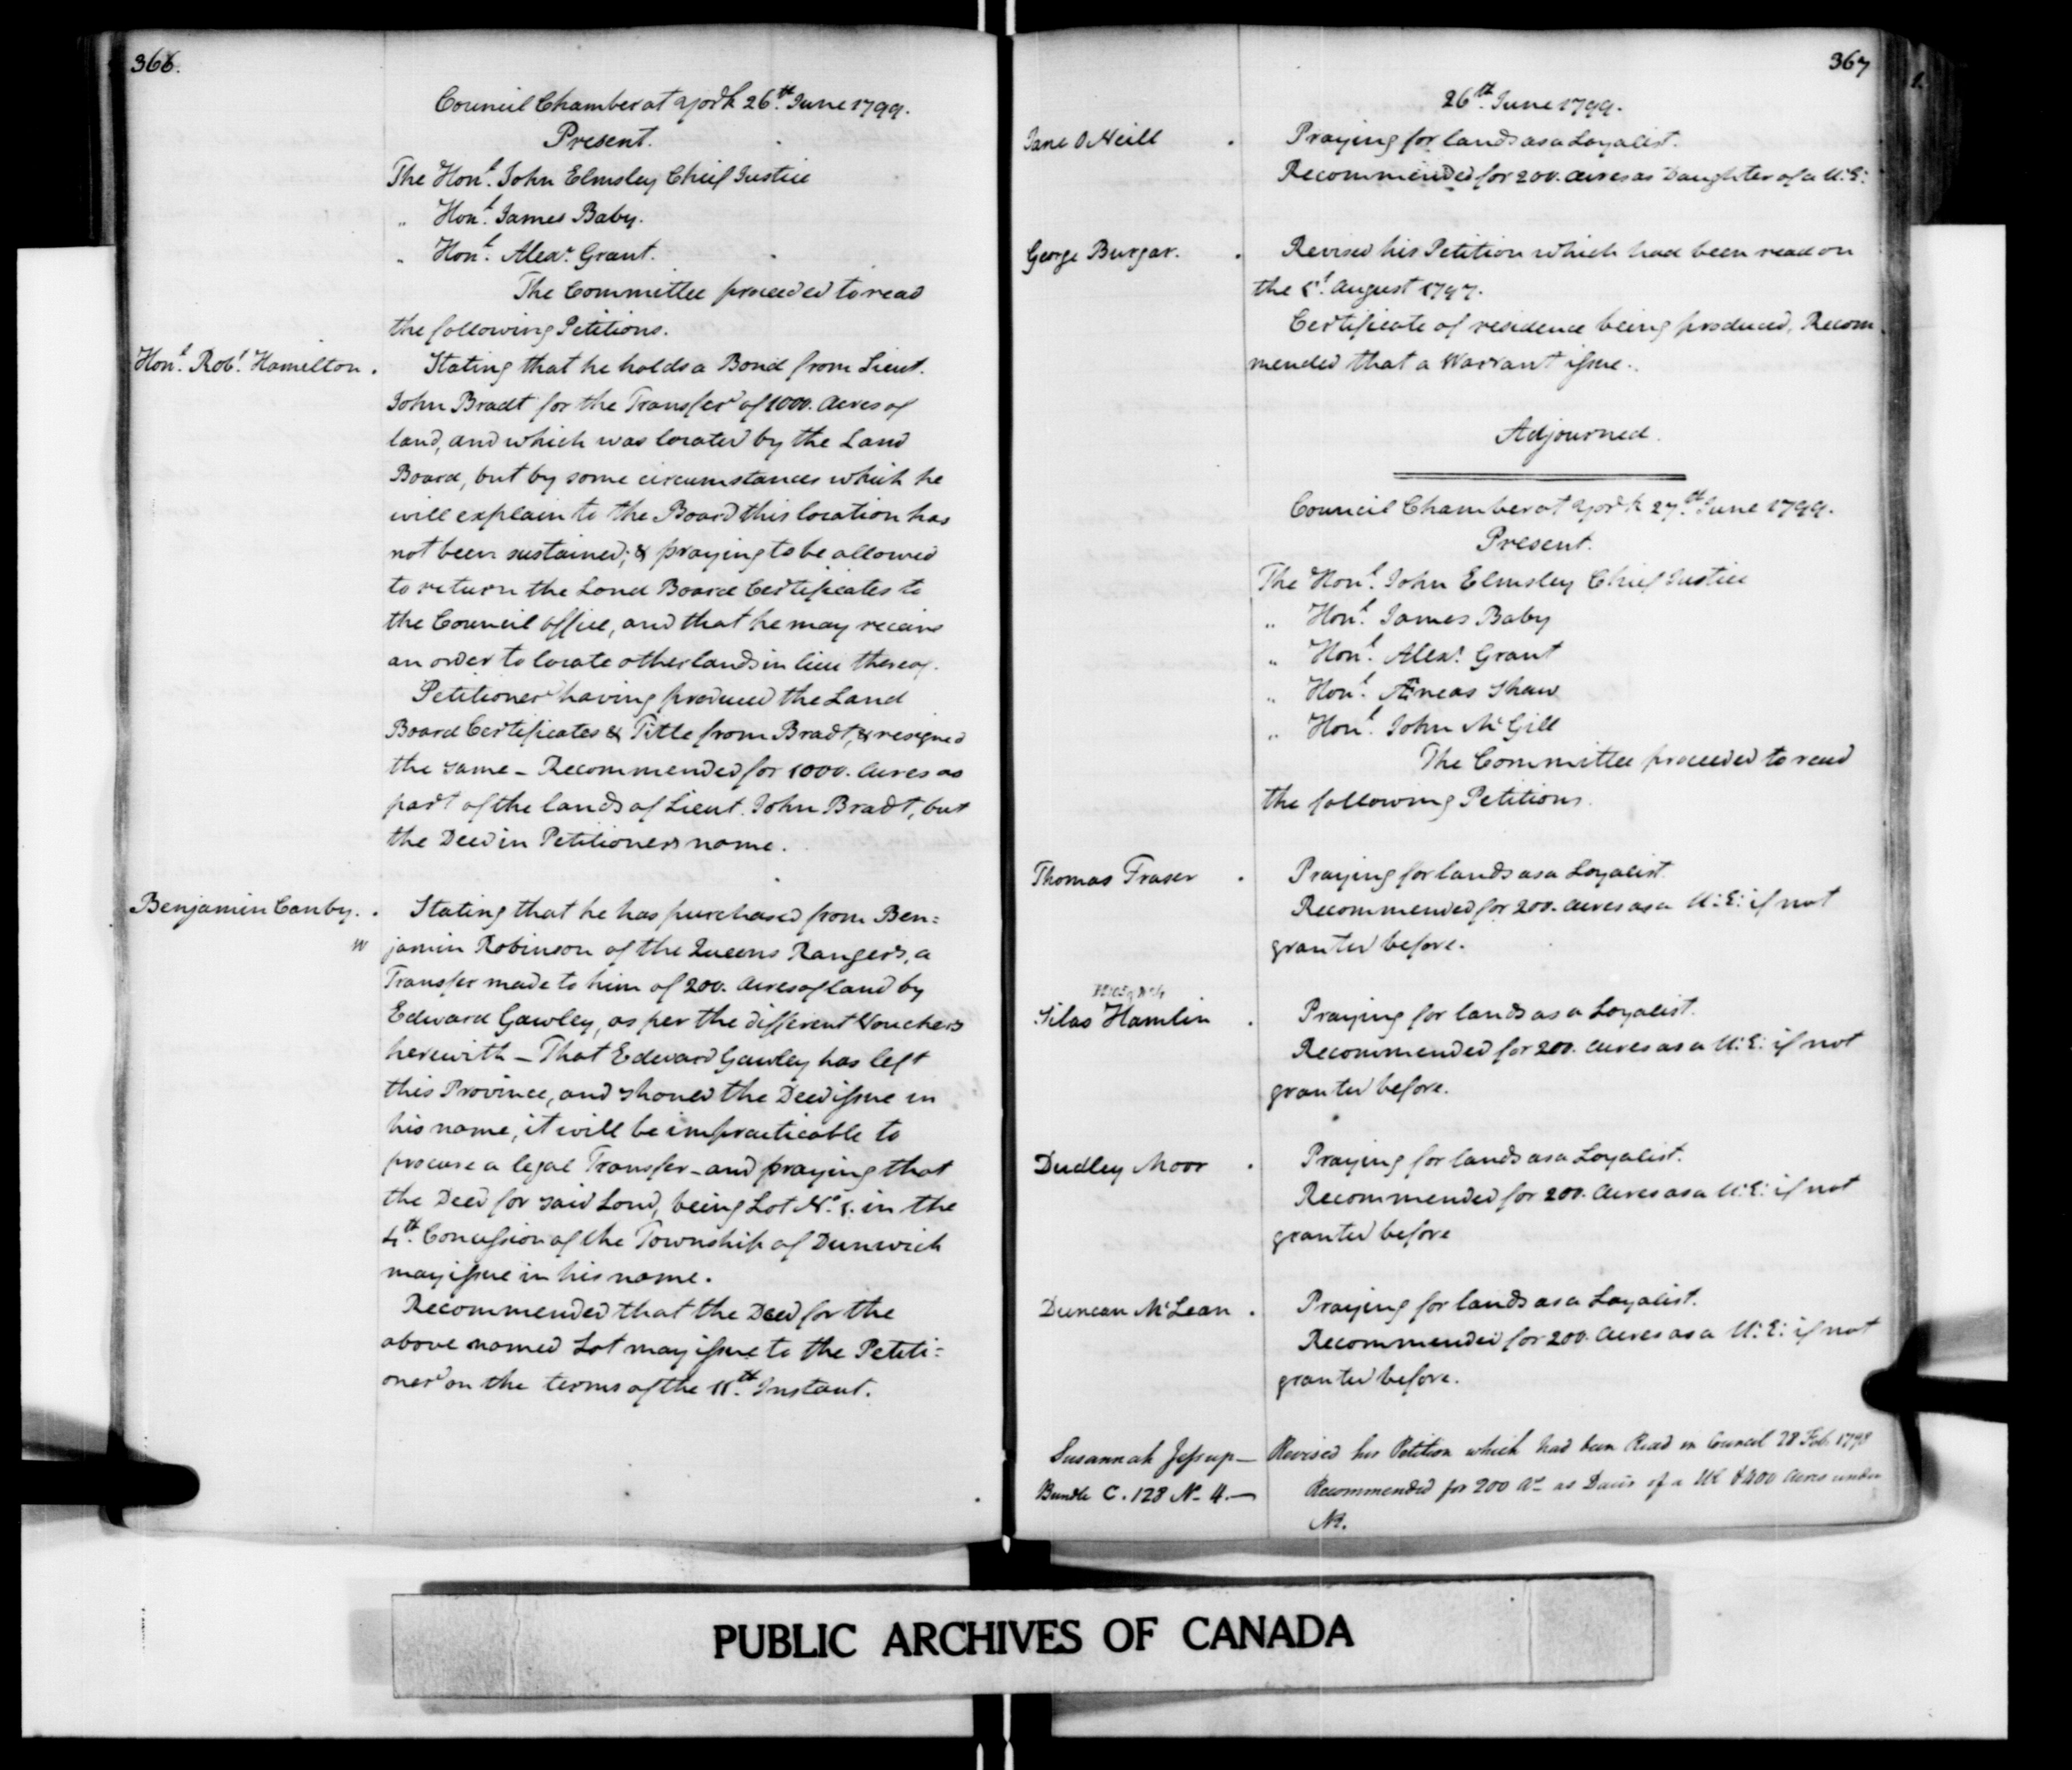 366.
Council Chamber at York 26th. June 1799.
Present.
The Honl. John Elmsley Chief Justice
" Honl. James Baby.
" Honl. Alexr. Grant.
The Committee proceeded to read
the following Petitions.
Honl. Robt. Hamilton.
Stating that he holds a Bond from Lieut.
John Bradt for the Transfer of 1000. Acres of
land, and which was located by the Land
Board, but by some circumstances which he
will explain to the Board this location has
not been sustained; & praying to be allowed
to return the Land Board Certificates to
the Council Office, and that he may receive
an order to locate other lands in lieu thereof.
Petitioner having produced the Land
Board Certificates & Title from Bradt, & resigned
the same – Recommended for 1000. Acres as
part of the lands of Lieut. John Bradt, but
the Deed in Petitioners name.
Benjamin Canby.
Stating that he has purchased from Ben=
jamin Robinson of the Queens Rangers, a
Transfer made to him of 200. Acres of land by
Edward Gawley, as per the different Vouchers
herewith – That Edward Gawley has left
this Province, and should the Deed issue in
his name, it will be impracticable to
procure a legal Transfer – and praying that
the Deed for said Land, being Lot No. 1. in the
4th. Concession of the Township of Dunwich
may issue in his name.
Recommended that the Deed for the
above named Lot may issue to the Petiti=
oner on the terms of the 11th. Instant.
367
26th. June 1799.
Jane O Neill
Praying for lands as a Loyalist.
Recommended for 200. Acres as Daughter of a U:E:
George Burgar.
Revised his Petition which had been read on
the 1t. August 1797.
Certificate of residence being produced, Recom
mended that a Warrant issue.
Adjourned.
Council Chamber at York 27th. June 1799.
Present.
The Honl. John Elmsley Chief Justice
" Honl. James Baby
" Honl. Alexr. Grant
" Honl. Æneas Shaw
" Honl. John McGill
The Committee proceeded to read
the following Petitions.
Thomas Fraser
Praying for lands as a Loyalist.
Recommended for 200. Acres as a U:E: if not
granted before.
Silas Hamlin
Praying for lands as a Loyalist.
Recommended for 200. Acres as a U:E: if not
granted before.
Dudley Moor
Praying for lands as a Loyalist.
Recommended for 200. Acres as a U:E: if not
granted before
Duncan McLean.
Praying for lands as a Loyalist.
Recommended for 200. Acres as a U:E: if not
granted before.
Susannah Jessup—
Revised her Petition which had been Read in Council 28 Feb. 1798
Bundle C. 128 No. 4.—
Recommended for 200 As as Daur of a UE & 400 Acres under
PUBLIC ARCHIVES OF CANADA